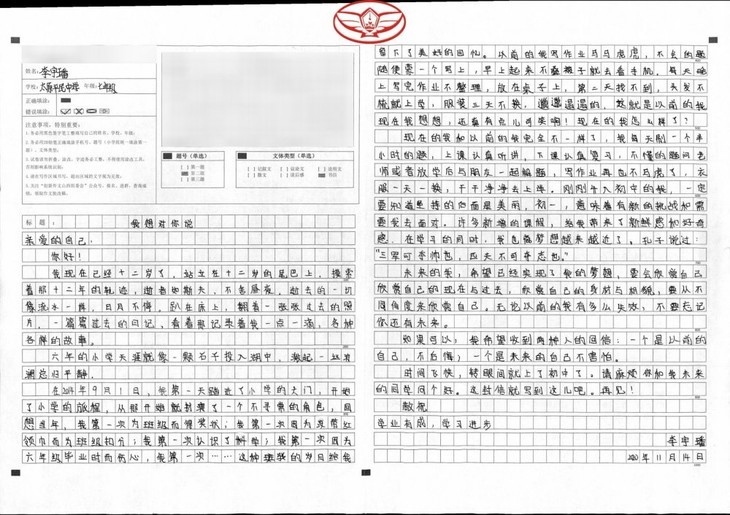 姓名：李宇璠
学校：太原平民中学 年级：七年级
正确填涂：
错误填涂：
注意事项，特别重要：
题号（单选）
第一题
第二题
第三题
文体类型（单选）
记叙文
议论文
说明文
散文
读后感
书信
标题：
我想对你说
亲爱的自己：
你好！
我现在已经十二岁了，站立在十二岁的尾巴上，摸索
着那十二年的轨迹，逝者如斯夫，不舍昼夜。逝去的一切
像流水一样，日月不停。趴在床上，翻着一张张过去的照
片，一篇篇过去的日记，看着那记录着我一点一滴，各种
各样的故事。
六年的小学天涯就像一颗石子投入湖中，激起一丝波
澜总归平静。
在2014年9月1日，你第一天踏进了小学的大门，开始
了小学的旅程，从那开始就扮演了一个不寻常的角色，回
想当年，我第一次为班级而得奖状；我第一次因为忘带红
领巾而为班级扣分；我第一次认识了解学；我第一次因为
六年级毕业时而伤心，我第一次……这种
的岁月给我
留下了美好的回忆。以前的候写作业马马虎虎，不会的题
随便蒙一个写上，早上起来不叠被子就去看手机，每天晚
上写完作业不整理，放在桌子上，第二天找不到，头发不
梳就上学，服侯三天不换，邋邋遢遢的，这就是以前的我
现在我想想，还看有点儿可笑啊！现在的我怎么样了？
现在的我如以前的我完全不一样了，我每天刷一个半
小时的题，上课认真听讲，下课认真复习，不懂的题问老
师或者放学后与朋友一起解题，写作业再也不马虎了，衣
服一天一换，干干净净去上体。刚刚升入初中的我，一定
要知道坚持的他面是美丽，初一，意味着有新的挑战如需
要我去面对。许多新增的课程，给我带来了新鲜感和好奇
感，在学习的同时，我也离梦想越来越近了。孔子说过：
“三军可夺帅也，匹夫不可夺志也。”
未来的我，希望已经实现了我的梦想，要会欣赏自己
欣赏自己的现在与过去，欣赏自己的身材与机貌，要从不
同角度来欣赏自己。无论以前的我有多么失败，不要忘记
你还有未来。
如果可以，我希望收到两种人的回信：一个是以前的
自己，不自悔；一个是未来的自己不害怕。
时间飞快，转眼间就上了初中了。请麻烦你如我未来
的同学问个好。这封信就写到这儿吧。再见！
敬祝
学业有成，学习进步
李宇璠
2020年11月14日